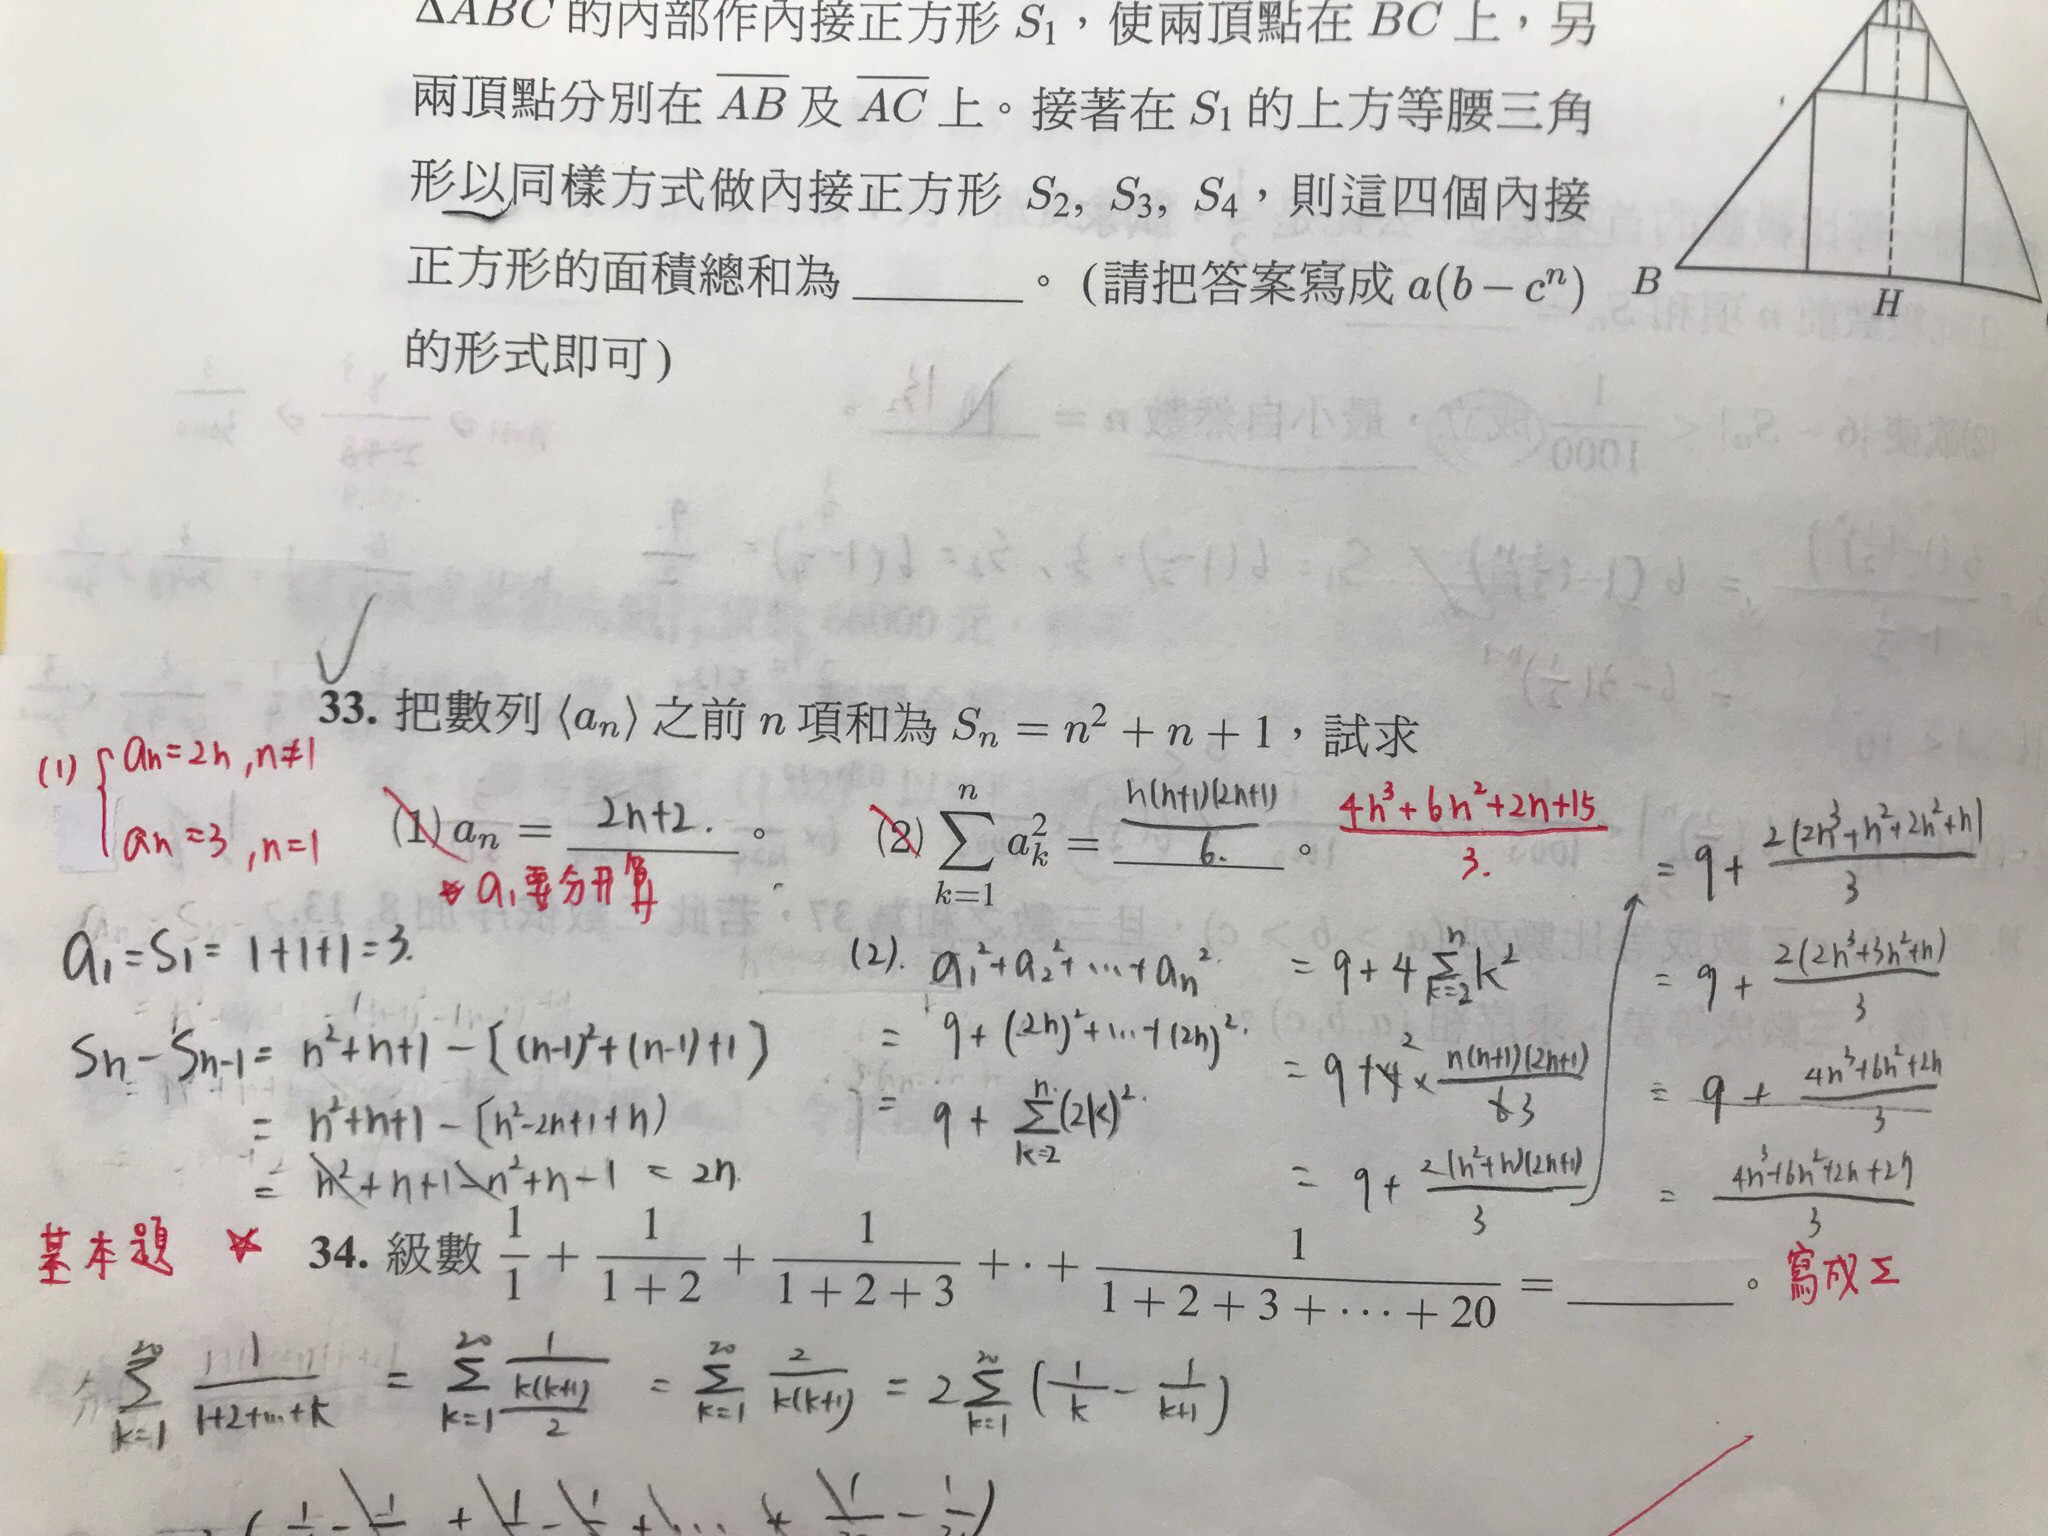 ΔABC 的內部作內接正方形 S₁，使兩頂點在 BC 上，另
兩頂點分別在 AB 及 AC 上。接著在 S₁ 的上方等腰三角
形以同樣方式做內接正方形 S₂, S₃, S₄，則這四個內接
正方形的面積總和為______。(請把答案寫成 a(b−cⁿ)
的形式即可)
B
H
33. 把數列 ⟨aₙ⟩ 之前 n 項和為 Sₙ = n² + n + 1，試求
(1) { aₙ=2n, n≠1
aₙ=3, n=1
(1) aₙ = 2n+2. 。
(2) ∑_{k=1}^{n} a_k² = n(n+1)(2n+1)/6. 。
(4n³+6n²+2n+15)/3.
☆ a₁要分開算
a₁=S₁= 1+1+1=3.
Sₙ−Sₙ₋₁= n²+n+1−[(n-1)²+(n-1)+1]
= n²+n+1−[n²-2n+1+n)
= n²+n+1−n²+n−1 = 2n.
(2). a₁²+a₂²+…+aₙ².
= 9+(2n)²+…+(2n)².
= 9 + ∑_{k=2}^{n}(2k)².
= 9+4∑_{k=2}^{n}k²
= 9+4² × n(n+1)(2n+1)/6 3
= 9+ 2(n²+n)(2n+1)/3
= 9+ 2(2n³+n²+2n²+n)/3
= 9+ 2(2n³+3n²+n)/3
= 9+ (4n³+6n²+2n)/3
= (4n³+6n²+2n+27)/3
基本題 ☆
34. 級數 1/1 + 1/(1+2) + 1/(1+2+3) + · + 1/(1+2+3+⋯+20) = ______。
寫成Σ
∑_{k=1}^{20} 1/(1+2+…+k) = ∑_{k=1}^{20} 1/(k(k+1)/2) = ∑_{k=1}^{20} 2/(k(k+1)) = 2∑_{k=1}^{20} (1/k − 1/(k+1))